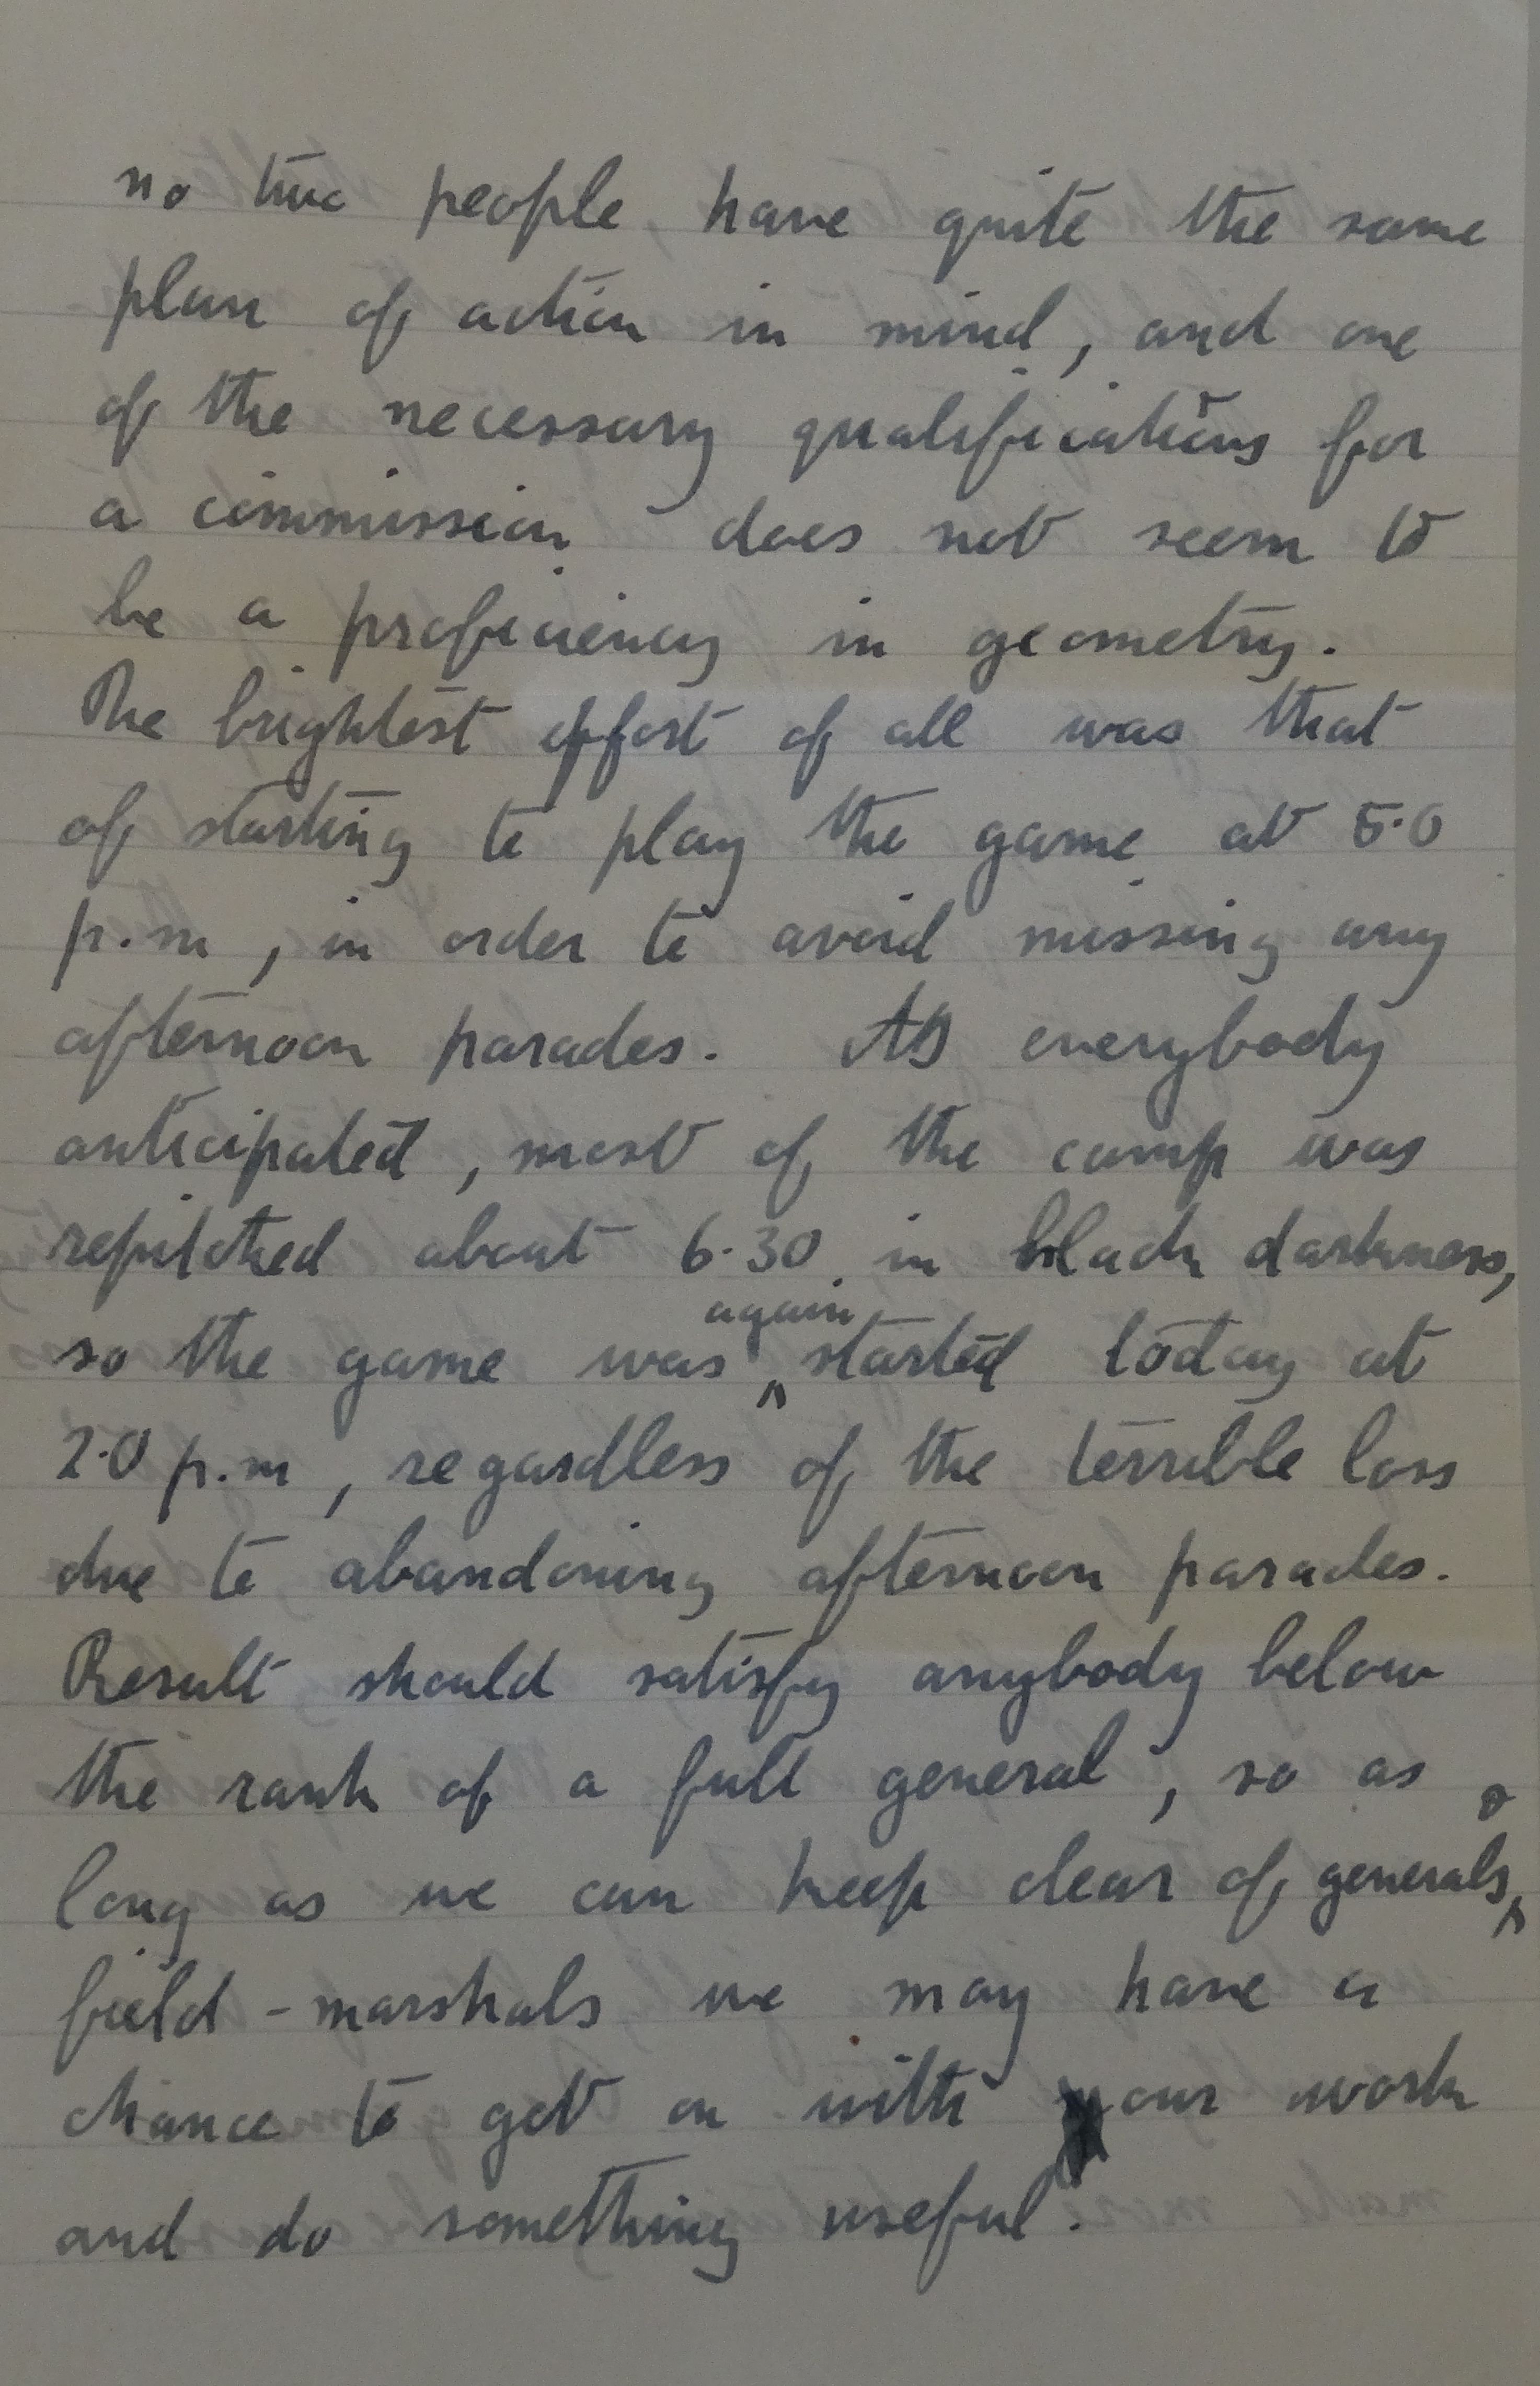 no two people have quite the same
plan of action in mind, and one
of the necessary qualifications for
a commission does not seem to
be a proficiency in geometry.
The brightest effort of all was that
of starting to play the game at 5.0
p.m, in order to avoid missing any
afternoon parades. As everybody
anticipated, most of the camp was
repitched about 6.30 in black darkness,
so the game was again started today at
2.0 p.m, regardless of the terrible loss
due to abandoning afternoon parades.
Result should satisfy anybody below
the rank of a full general, so as
long as we can keep clear of generals &
field-marshals we may have a
chance to get on with our work
and do something useful.